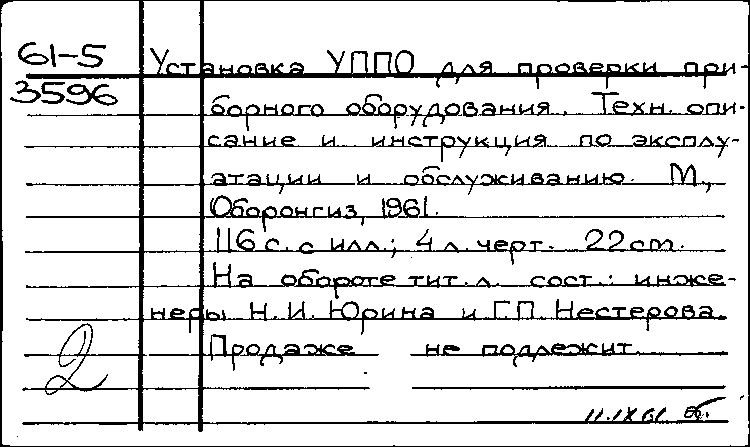 61-5
3596
Установка УППО для проверки при-
борного оборудования. Техн. опи-
сание и инструкция по эксплу-
атации и обслуживанию. М.,
Оборонгиз, 1961.
116 с. с илл.; 4 л. черт. 22 см.
На обороте тит. л. сост.: инже-
неры Н. И. Юрина и Г. П. Нестерова.
Продаже не подлежит.
2
11.IX.61